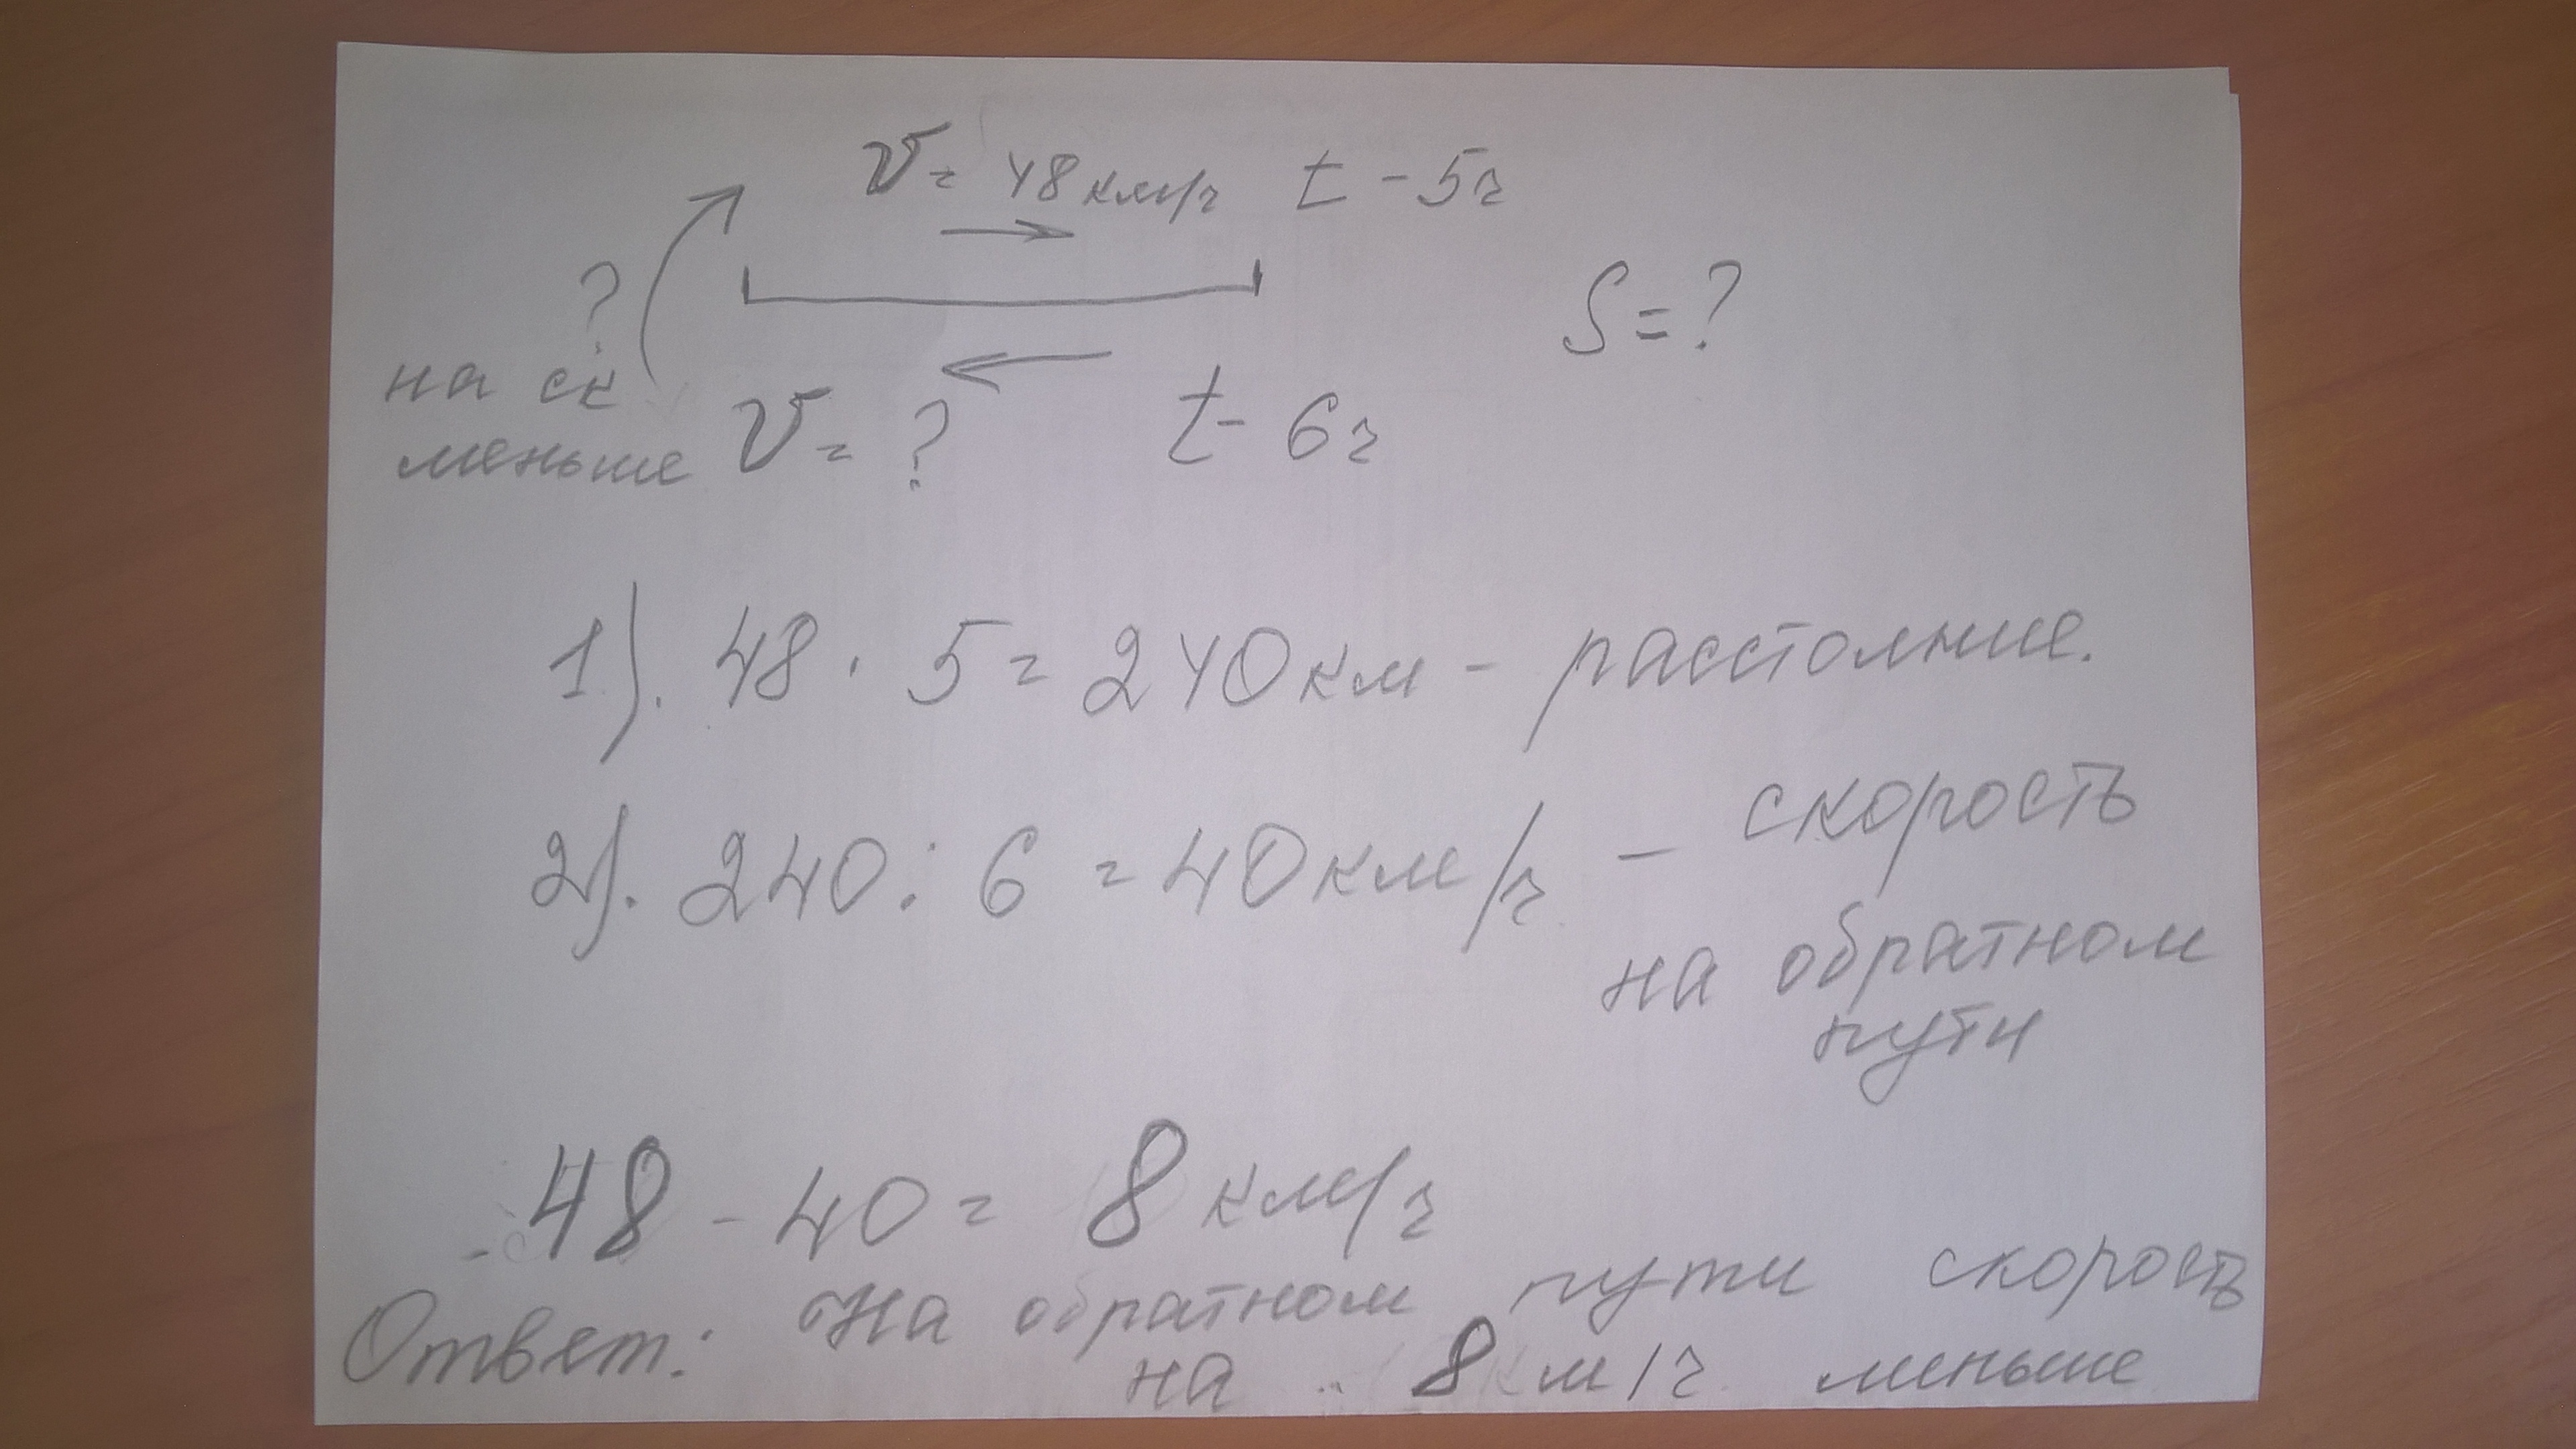 v = 48 км/ч t - 5ч
?
на ск
меньше
S = ?
v = ? t - 6ч
1). 48 · 5 = 240 км - расстояние.
2). 240 : 6 = 40 км/ч - скорость
на обратном
пути
48 - 40 = 8 км/ч
Ответ: На обратном пути скорость
на 8 км/ч меньше